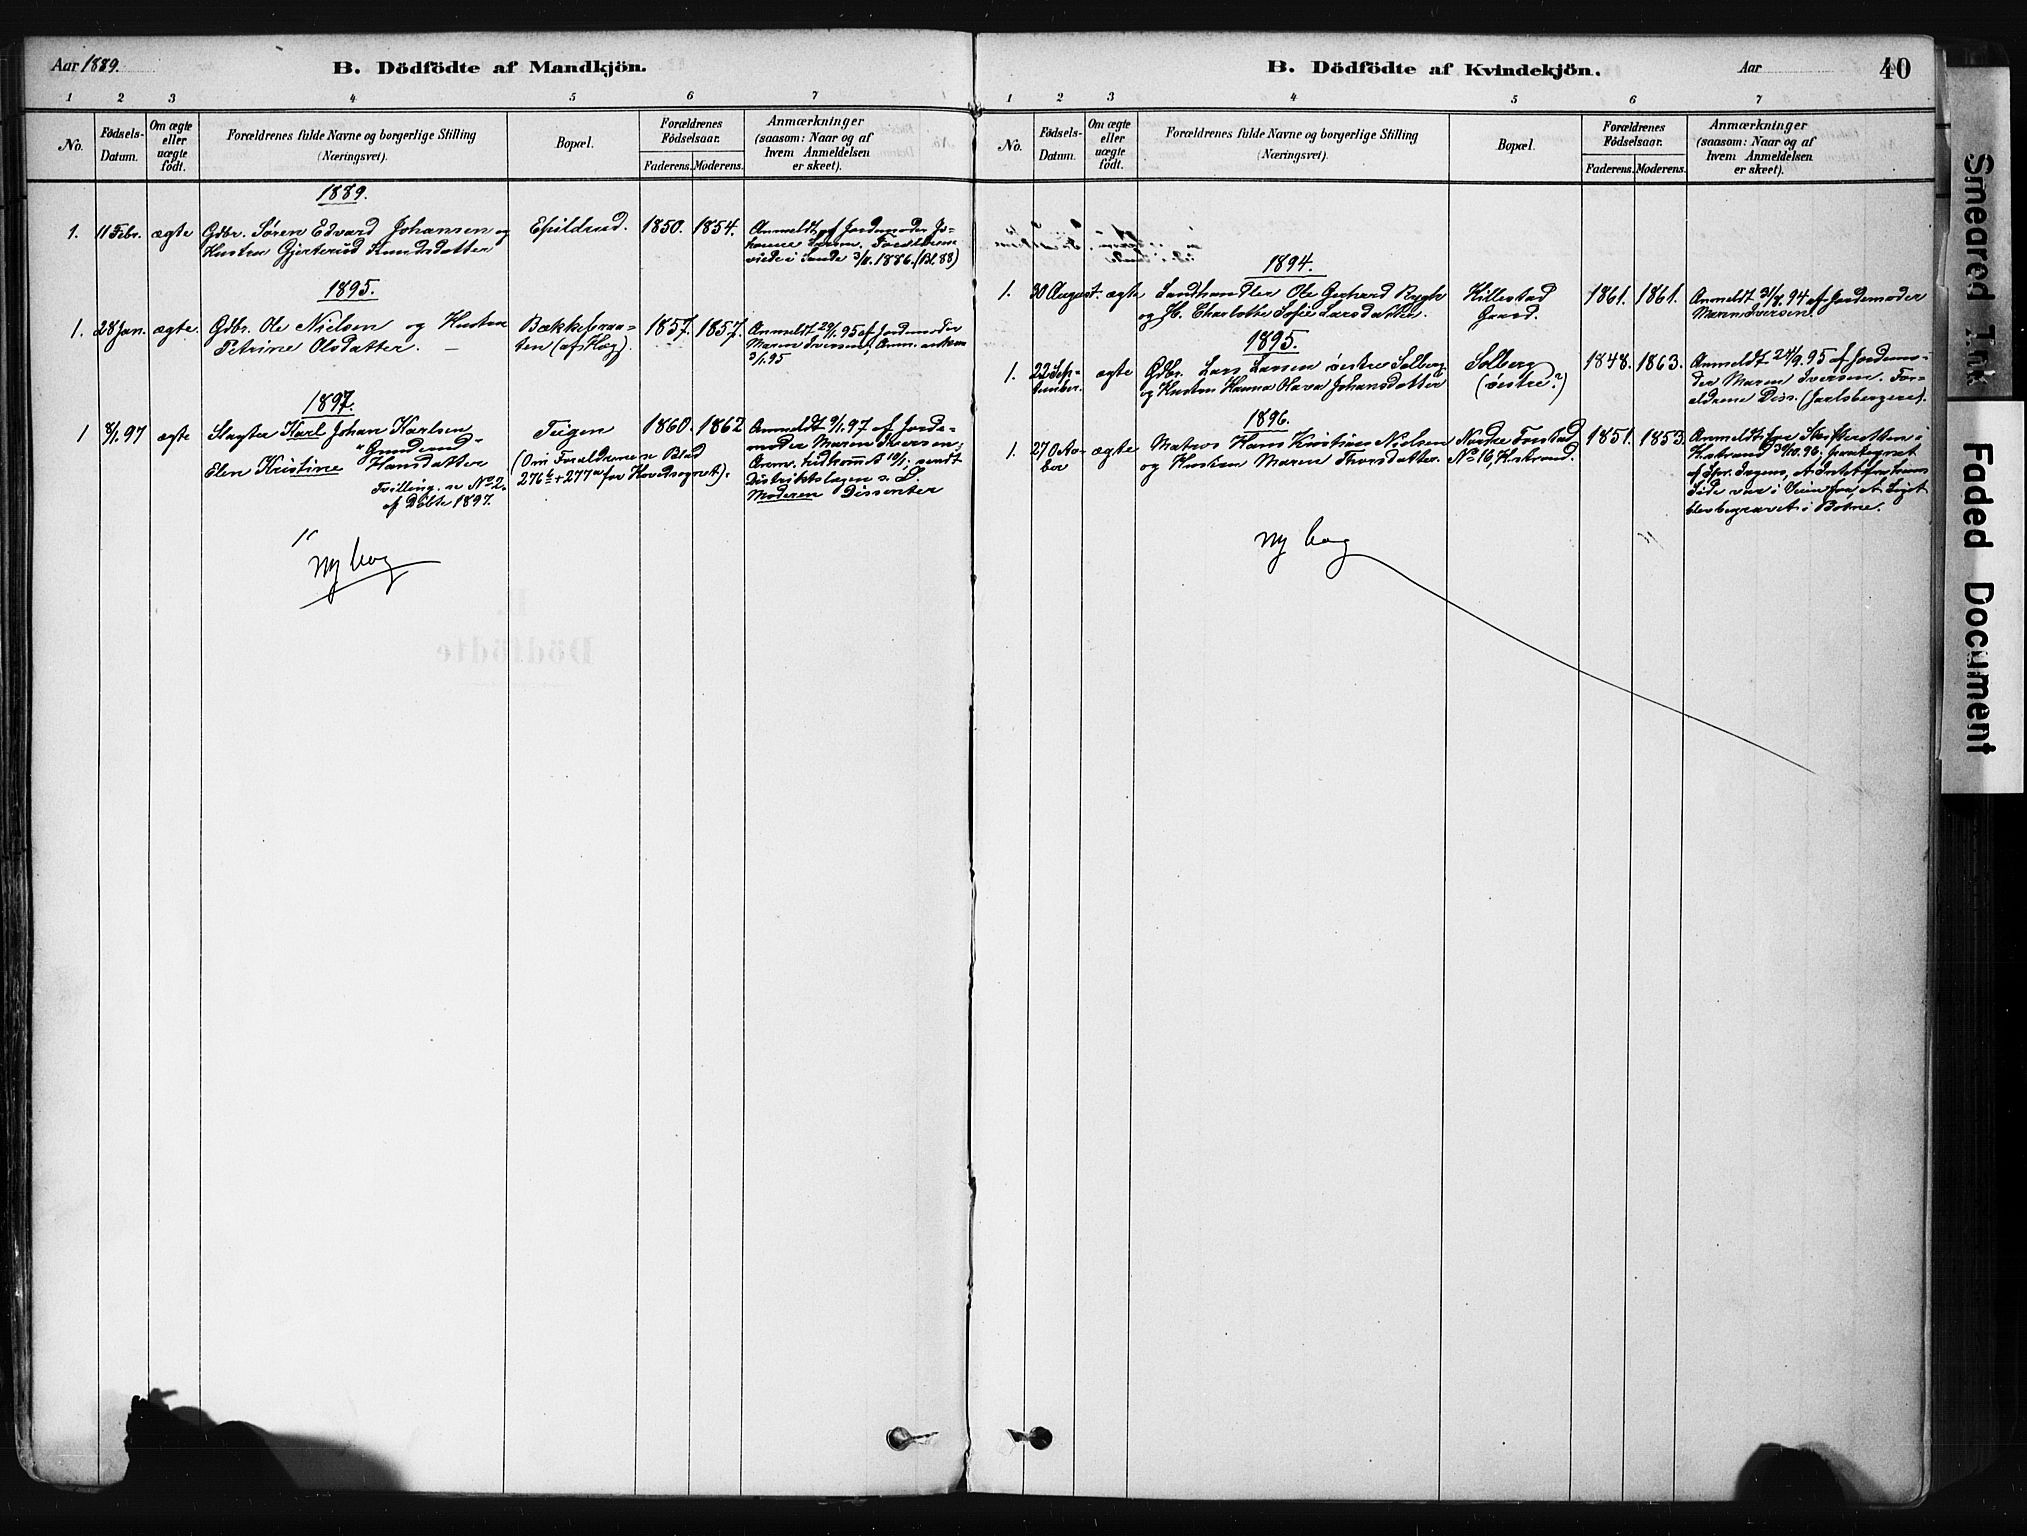 Aar 1889.
B. Dödfödte af Mandkjön.
1 2 3 4 5 6 7
No.
Födsels-
Datum.
Om ægte
eller
uægte
födt.
Forældrenes fulde Navne og borgerlige Stilling
(Næringsvei).
Bopæl.
Forældrenes
Födselsaar.
Faderens. Moderens.
Anmærkninger
(saasom: Naar og af
hvem Anmeldelsen
er skeet).
1889.
1. 11 Febr. ægte Gdbr. Søren Edvard Johansen og
Hustru Gjerterud Knudsdatter
1850. 1854.
Anmeldt af Jordemoder Jo-
hanne Iversen. Forældrene
viede i Sande 3/11. 1886. (Bl. 88)
1895.
1. 28 Jan. ægte. Gdbr. Ole Nielsen og Hustru
Petrine Olsdatter. —
Bækkebraa-
ten (af Høg).
1857. 1857.
Anmeldt 29/1. 95 af Jordemoder
Maren Iversen; Anm. ankom
3/1. 95
1897.
1 8/1. 97 ægte Slagter Karl Johan Karlsen
Elen Kristine Hansdatter
Tvilling. se No 2.
af Döbte 1897.
Teigen
(Om Forældrene se Blad
276b + 277a for Hovedsognet).
1860. 1862
Anmeldt 9/1. 97 af Jorde-
moder Maren Iversen;
Anm. tidkomst 10/1; sendt
Distriktslægen s. D.
Moderen Dissenter
Ny bog
B. Dödfödte af Kvindekjön.
Aar
40
1 2 3 4 5 6 7
No.
Födsels-
Datum.
Om ægte
eller
uægte
födt.
Forældrenes fulde Navne og borgerlige Stilling
(Næringsvei).
Bopæl.
Forældrenes
Födselsaar.
Faderens. Moderens.
Anmærkninger
(saasom: Naar og af
hvem Anmeldelsen
er skeet).
1894.
1. 30 August. ægte Landhandler Ole Gerhard Rygh
og H. Charlotte Sofie Larsdatter.
Hillestad
Gaard.
1861. 1861.
Anmeldt 31/8. 94 af Jordemoder
Maren Iversen.
1895.
1. 22 Sep-
tember. ægte Gdbr. Lars Larsen østre Solberg
og Hustru Hanna Olava Johansdatter
Solberg
(østre?)
1848. 1863.
Anmeldt 24/9. 95 af Jordemo-
der Maren Iversen. For-
ældrene Diss. (Jarlsbergeret).
1896.
1. 27 Octo-
ber ægte Matros Hans Kristian Nielsen
og Hustru Maren Thorsdatter.
Nordre Torstad
No 16, Hstrand.
1851. 1853.
Anmeldt fra Skifteretten i
Hstrand 30/10. 96;
af Intet fra
Side var i Veien for, at Liget
blev begravet i Botne.
Ny bog
Dödfödte
Smeared Ink
Faded Document